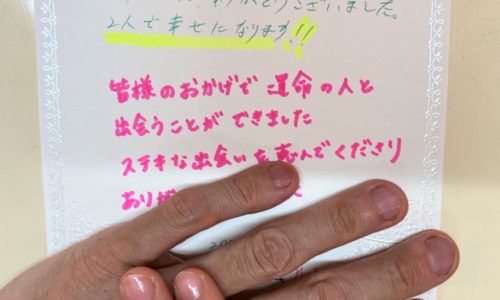 がとうございました。
2人で幸せになります!!
皆様のおかげで運命の人と
出会うことができました
ステキな出会いを恵んでくださり
ありが